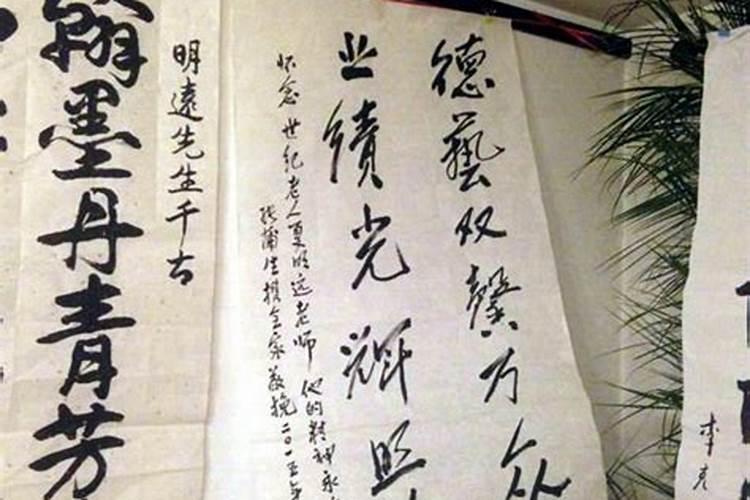 德艺双馨乃众
业绩光辉照
怀念世纪老人夏明远老师 他的精神永
张蒲生携全家敬挽 二〇一五年
明遠先生千古
翰墨丹青芳
李彦